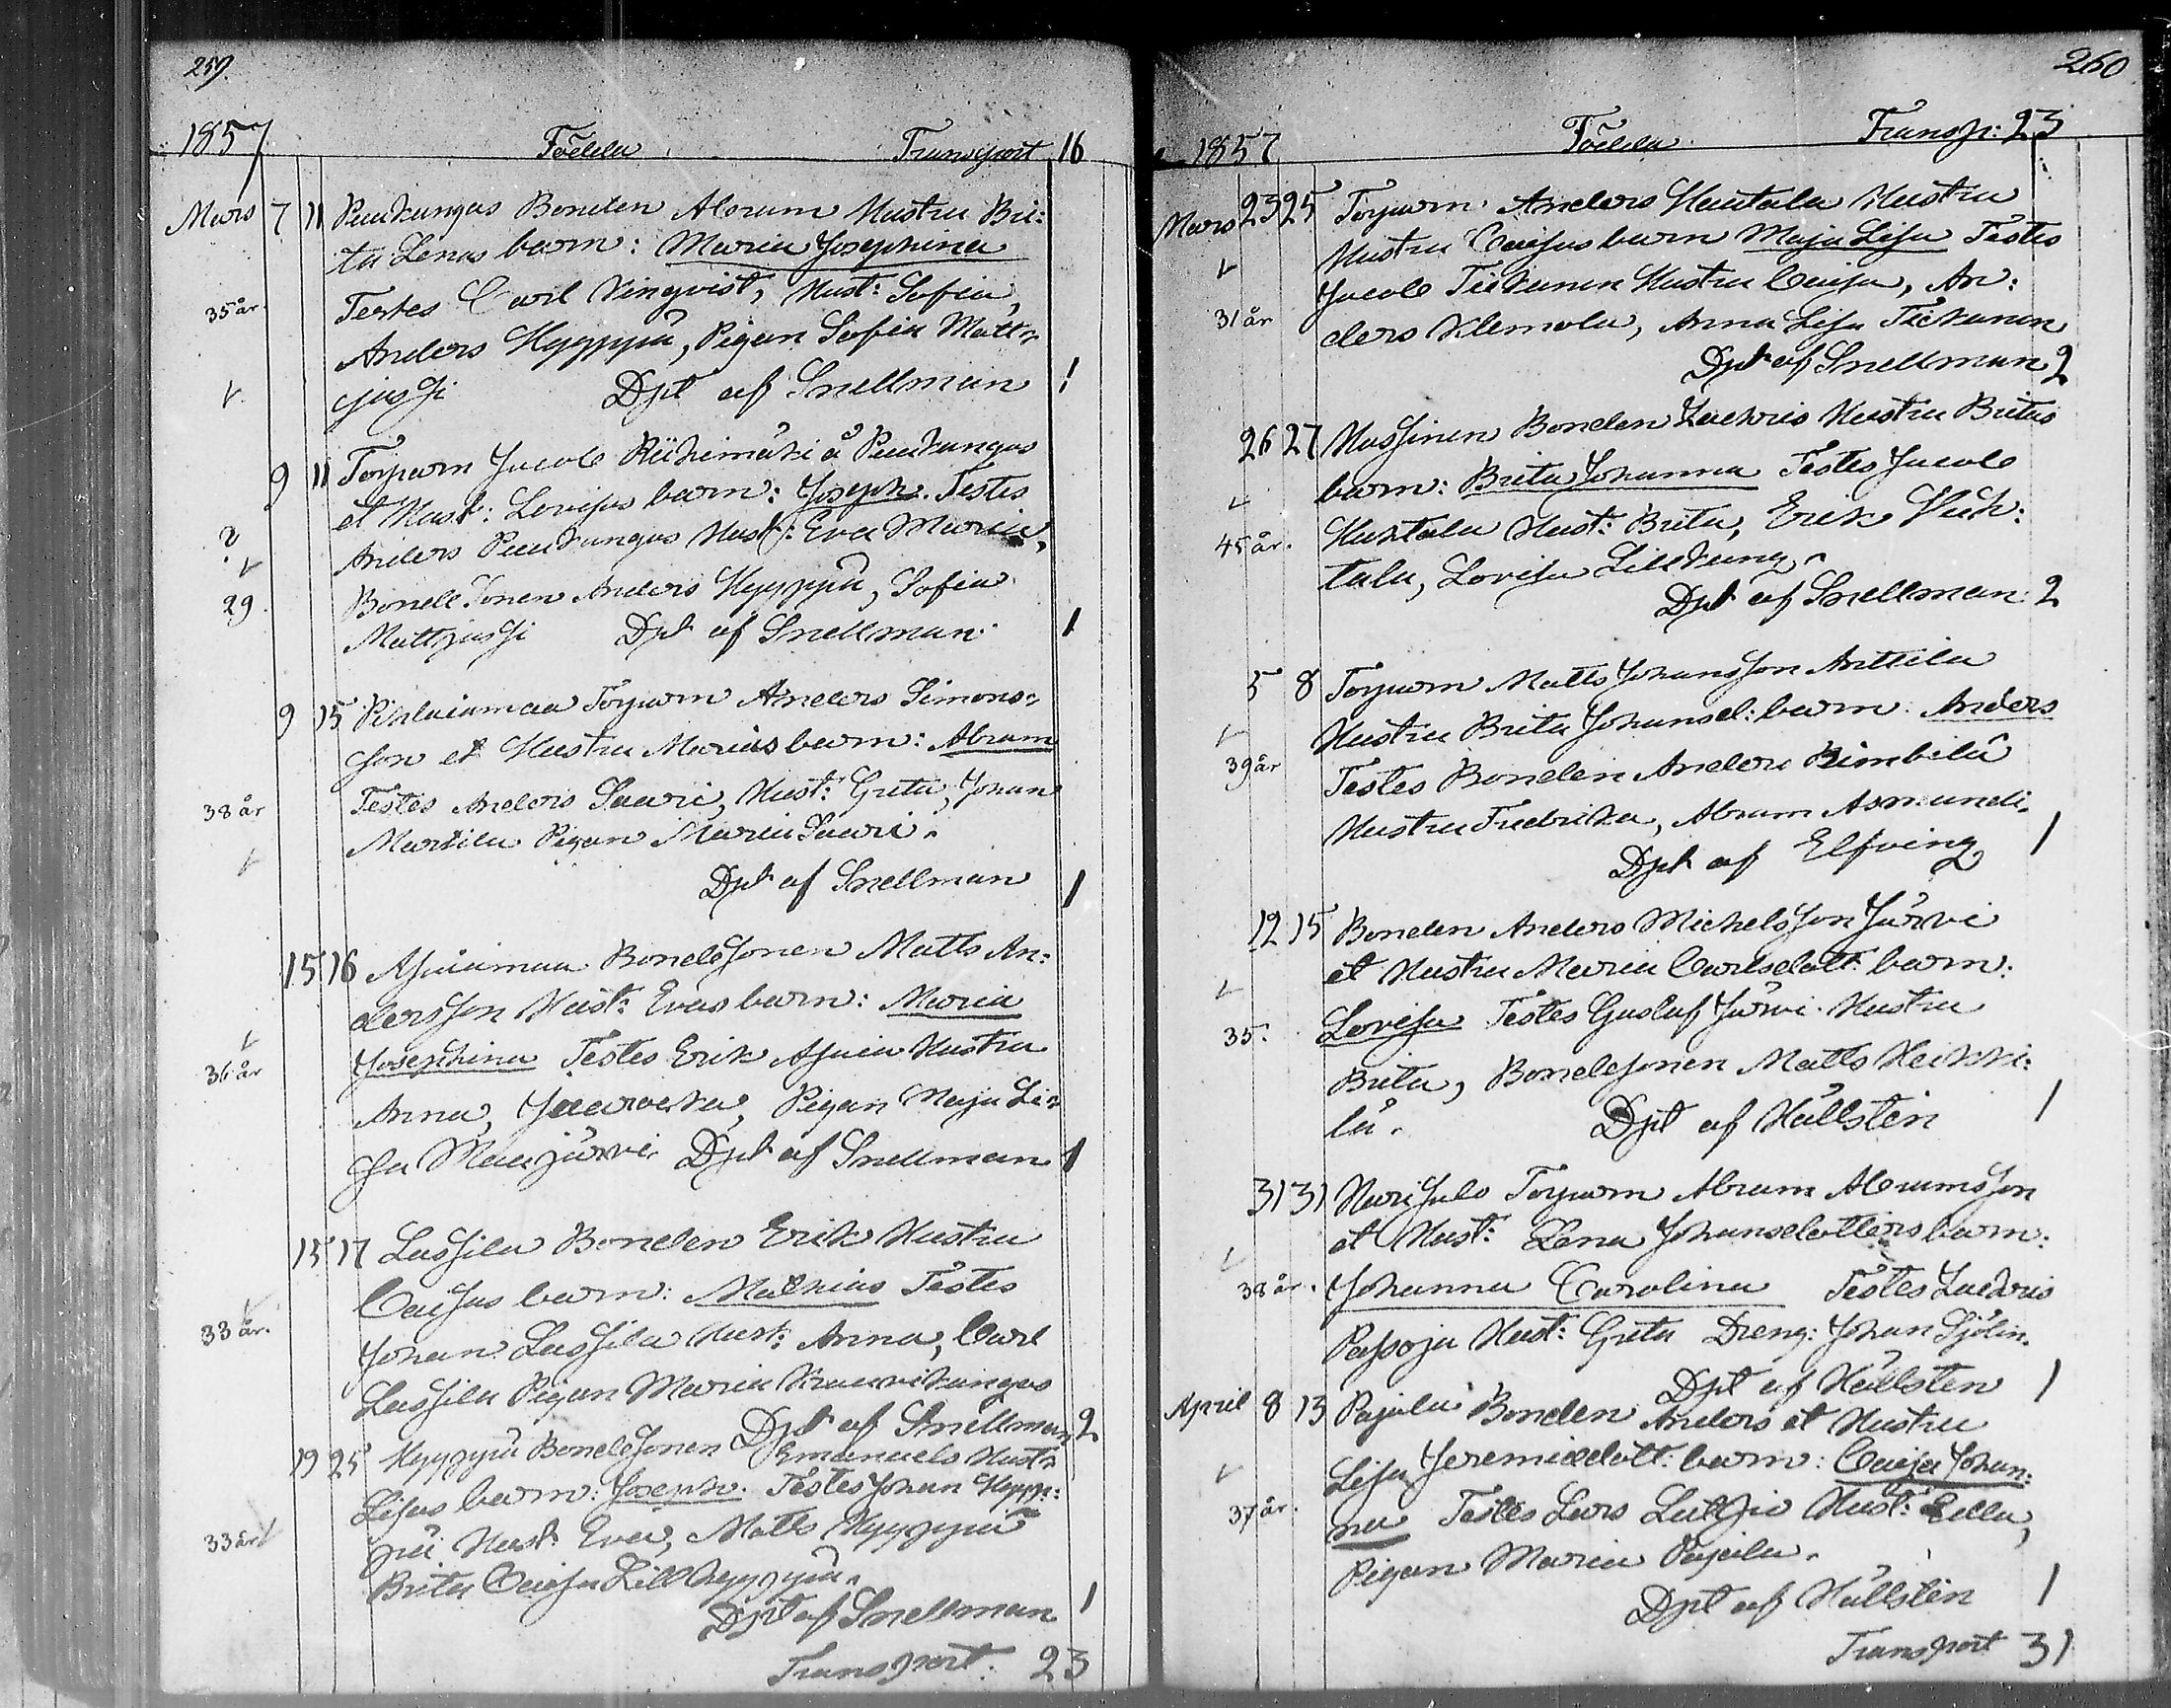 259.
1857 Födda Transport 16
Mars 7 11 Puukangas Bonden Abram Hustru Bri:
ta Lenas barn: Maria Josephina
35 år Testes Carl Kinqvist, Hust: Sofia,
Anders Hyyppä, Pigan Sofia Matt-
jussi Dpt af Snellman 1
9 11 Torparn Jacob Riihimäki å Puukangas
et Hust: Lovisas barn: Joseph. Testes
? Anders Puukangas Hust: Eva Maria,
29. Bondesonen Anders Hyyppä, Sofia
Mattjussi Dpt af Snellman 1
9 15 Pihlaiamaa Torparn Anders Simons-
son et Hustru Marias barn: Abram
38 år Testes Anders Saari, Hust: Greta, Johan
Martila Pigan Maria Saari.
Dpt af Snellman 1
15 16 Ajuiamaa Bondesonen Matts An:
dersson Hust: Evas barn: Maria
36 år Josephina Testes Erik Hustru
Anna, Pigan Maja Li-
sa Maajärvi Dpt af Snellman 1
15 17 Lassila Bonden Erik Hustru
Caisas barn: Mathias Testes
33 år. Johan Lassila Hust: Anna, Carl
Lassila Pigan Maria Kraavikangas
Dpt af Snellman 2
19 25 Hyyppä Bondesonen Emanuels Hust:
Lisas barn: Joseph. Testes Johan Hypp:
33 år pä Hust: Eva, Matts Hyyppä
Brita Caisa Lillhyyppä.
Dpt af Snellman 1
Transport: 23
260
1857 Födda Transp: 23
Mars 23 25 Torparn Anders Hautala Hustru
Hustru Caisas barn Maja Lisa Testes
31 år Jacob Tiikanen Hustru Caisa, An:
ders Klemola, Anna Lisa Tiikanen
Dpt af Snellman 2
26 27 Hassinen Bonden Zachris Hustru Britas
barn: Brita Johanna Testes Jacob
45 år. Huhtala Hust: Brita, Erik Huh:
tala, Lovisa Lillkung.
Dpt af Snellman: 2
5 8 Torparn Matts Johansson Anttila
Hustru Brita Johansd: barn: Anders
39 år Testes Bonden Anders Rimbilä
Hustru Fredrika, Abram Asmundi.
Dpt af Elfving 1
12 15 Bonden Anders Michelsson Järvi
et Hustru Maria Carlsdott: barn:
35. Lovisa Testes Gustaf Järvi Hustru
Brita, Bondesonen Matts Heikki:
lä. Dpt af Hällsten 1
31 31 Harisalo Torparn Abram Abramsson
et Hust: Lena Johansdotters barn:
38 år. Johanna Carolina Testes Zachris
Passoja Hust: Greta Dreng: Johan Sjölin.
Dpt af Hällsten 1
April 8 13 Pajala Bonden Anders et Hustru
Lisa Jeremiædott: barn: Caisa Johan:
37 år. na Testes Lars Hust: Ella,
Pigan Maria Pajala.
Dpt af Hällsten 1
Transport 31